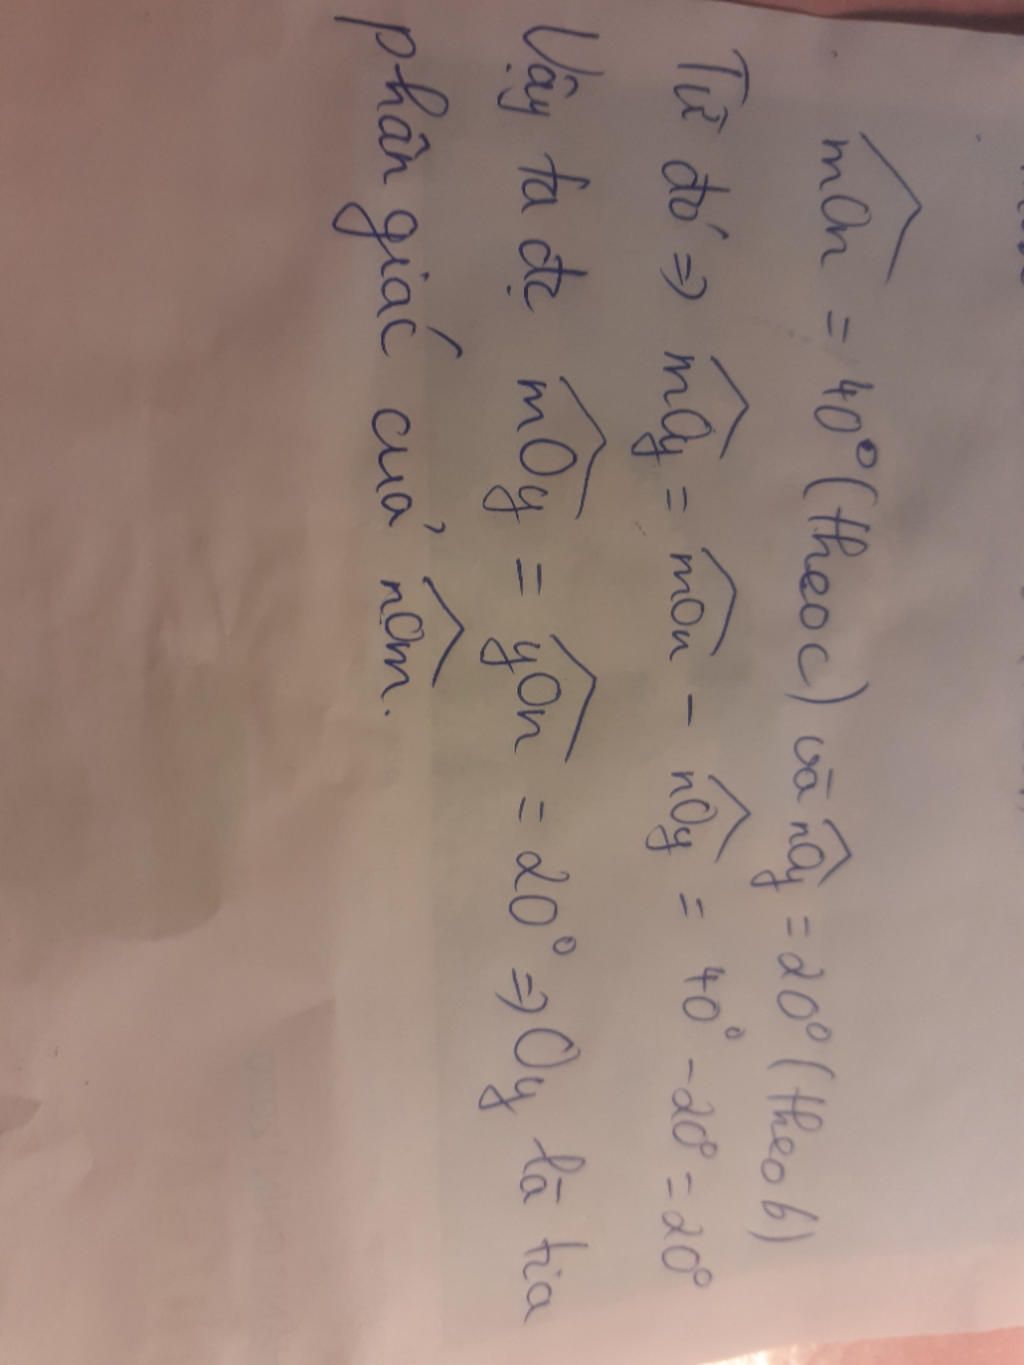 mOn = 40° (theo c) và nOy = 20° (theo b)
Từ đó => mOy = mOn - nOy = 40° - 20° = 20°
Vậy ta đc mOy = yOn = 20° => Oy là tia
phân giác của nOm.